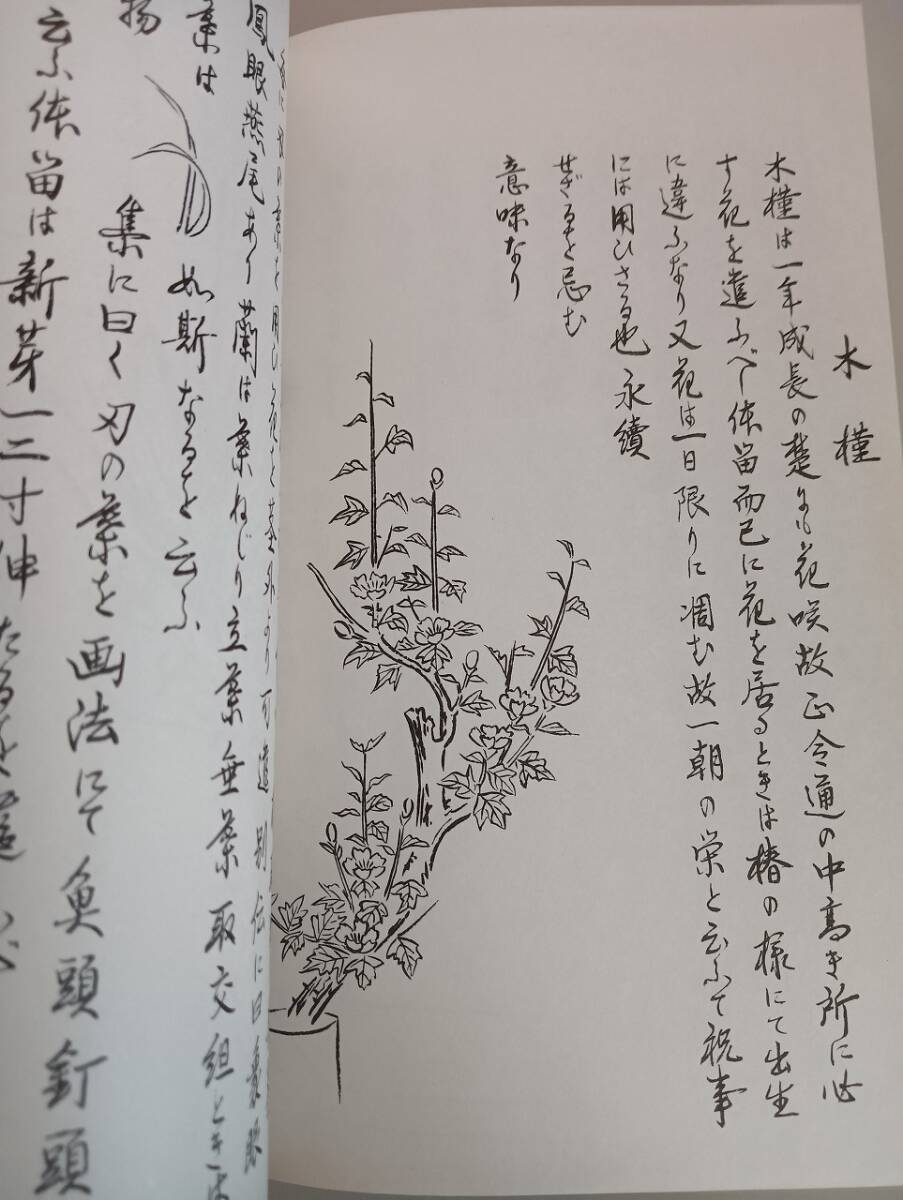 木槿
木槿は一年成長の楚にも花咲故正令通の中高き所に必
す花を遣ふべし体留而已に花を居るときは椿の様にて出生
に違ふなり又花は一日限りに凋む故一朝の栄と云ふて祝事
には用ひさる也永續
せざるを忌む
意味なり
鳳眼燕尾あり蘭は葉ねじり立葉垂葉取交組ときは
葉は
如斯なるを云ふ
揚
集に曰く刃の葉を画法にて魚頭釘頭
云ふ体留は新芽一二寸伸たる